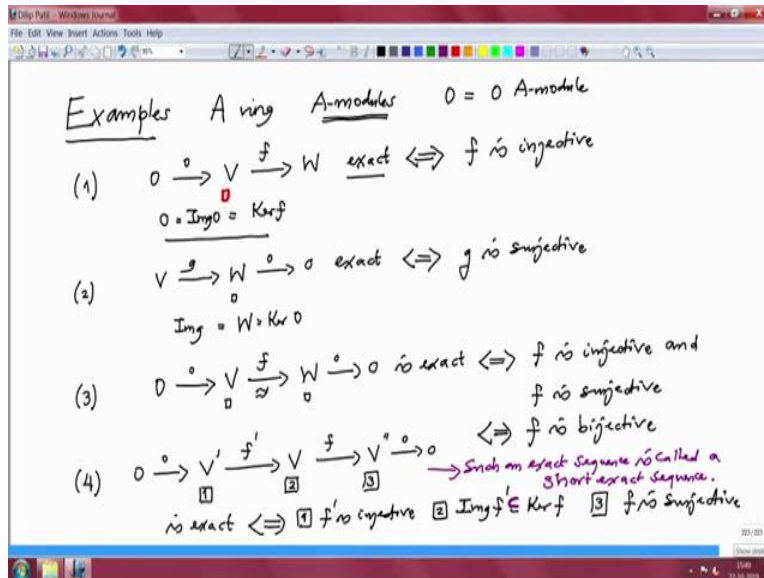 Dilip Patil - Windows Journal
File Edit View Insert Actions Tools Help
Examples A ring A-modules 0 = 0 A-module
(1) 0 →^0 V →^f W exact ⇔ f is injective
0 = Img 0 = Ker f
(2) V →^g W →^0 0 exact ⇔ g is surjective
Im g = W = Ker 0
(3) 0 →^0 V →^f W →^0 0 is exact ⇔ f is injective and
≈
f is surjective
⇔ f is bijective
(4) 0 →^0 V' →^f' V →^f V'' →^0 0 → Such an exact sequence is called a
short exact sequence.
1 2 3
is exact ⇔ 1 f' is injective 2 Img f' = Ker f 3 f is surjective